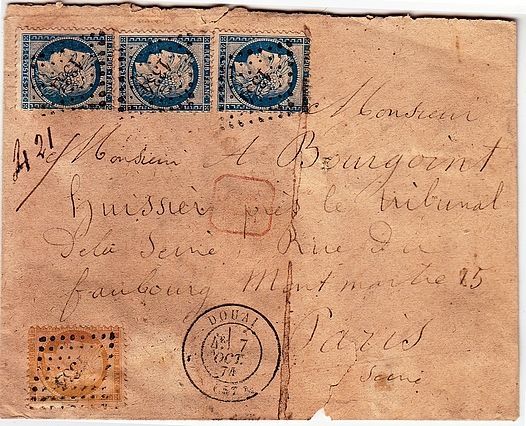 Monsieur
Monsieur A Bourgoint
huissier près le tribunal
De la Seine, Rue Du
faubourg Montmartre 15
Paris
Seine
21
DOUAI
7
OCT.
74
(57)